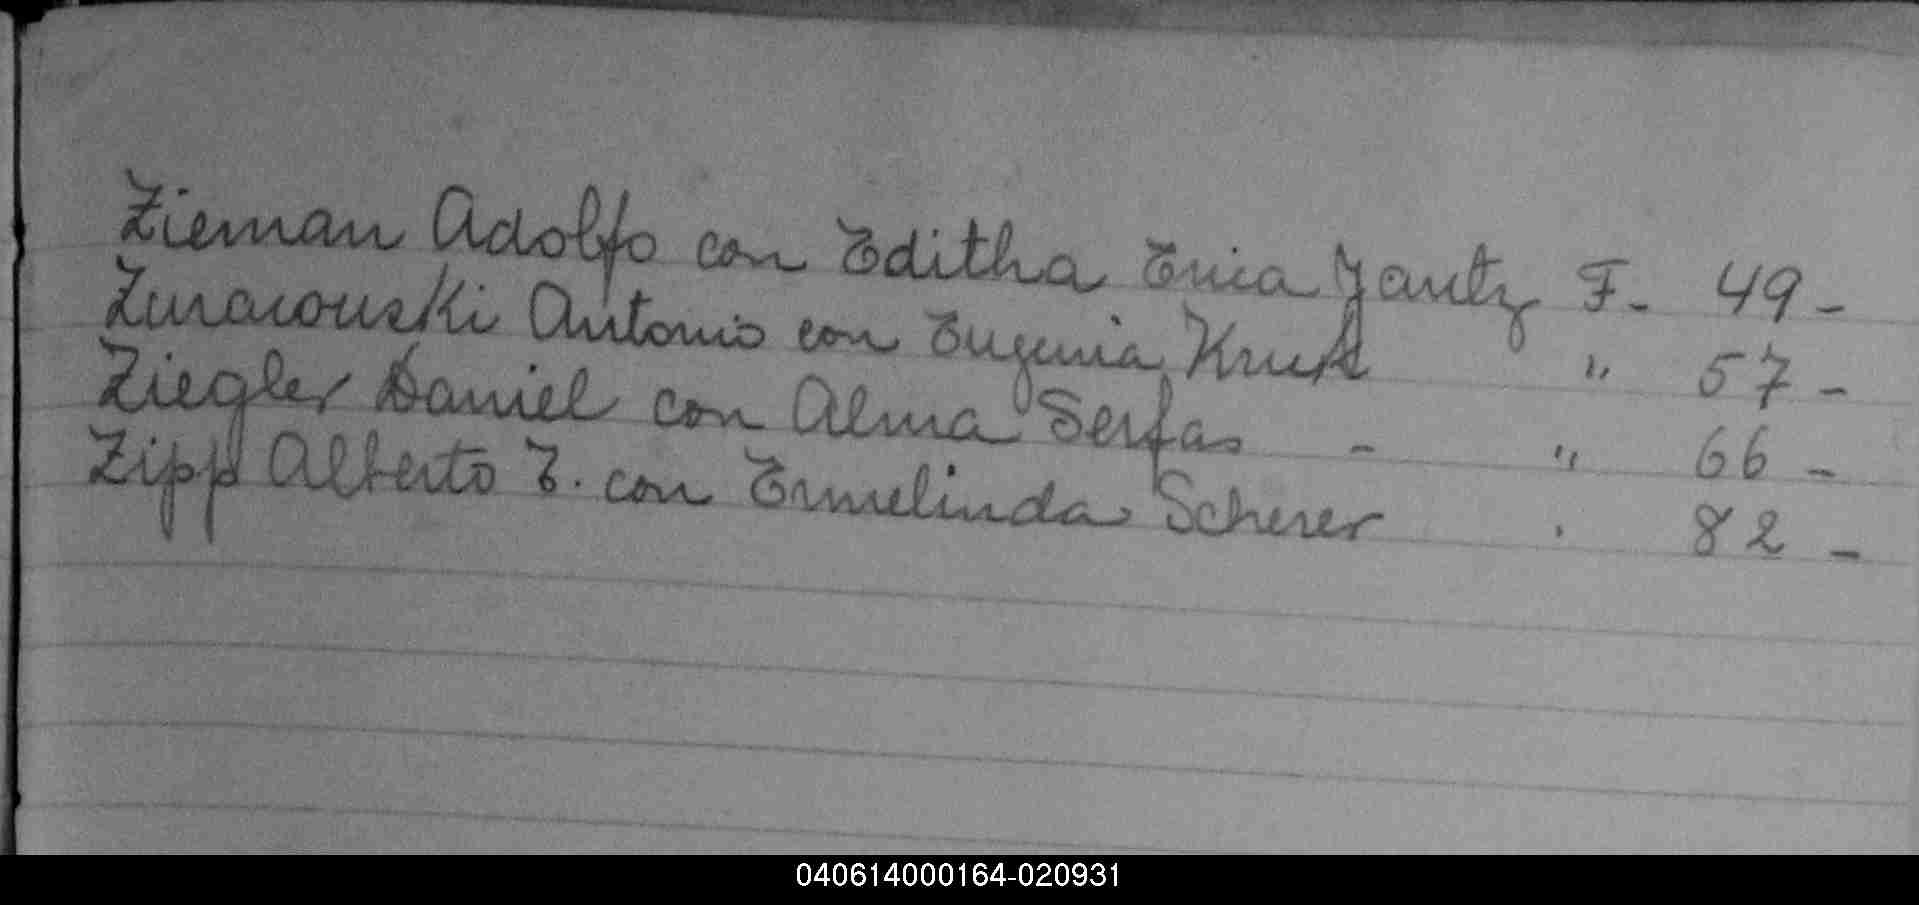 Zieman Adolfo con Editha Erica Jantz F. 49 -
Zuracouski Antonio con Eugenia Kruk " 57 -
Ziegler Daniel con Alma Serfas - " 66 -
Zipp Alberto E. con Ermelinda Scherer . 82 -
040614000164-020931